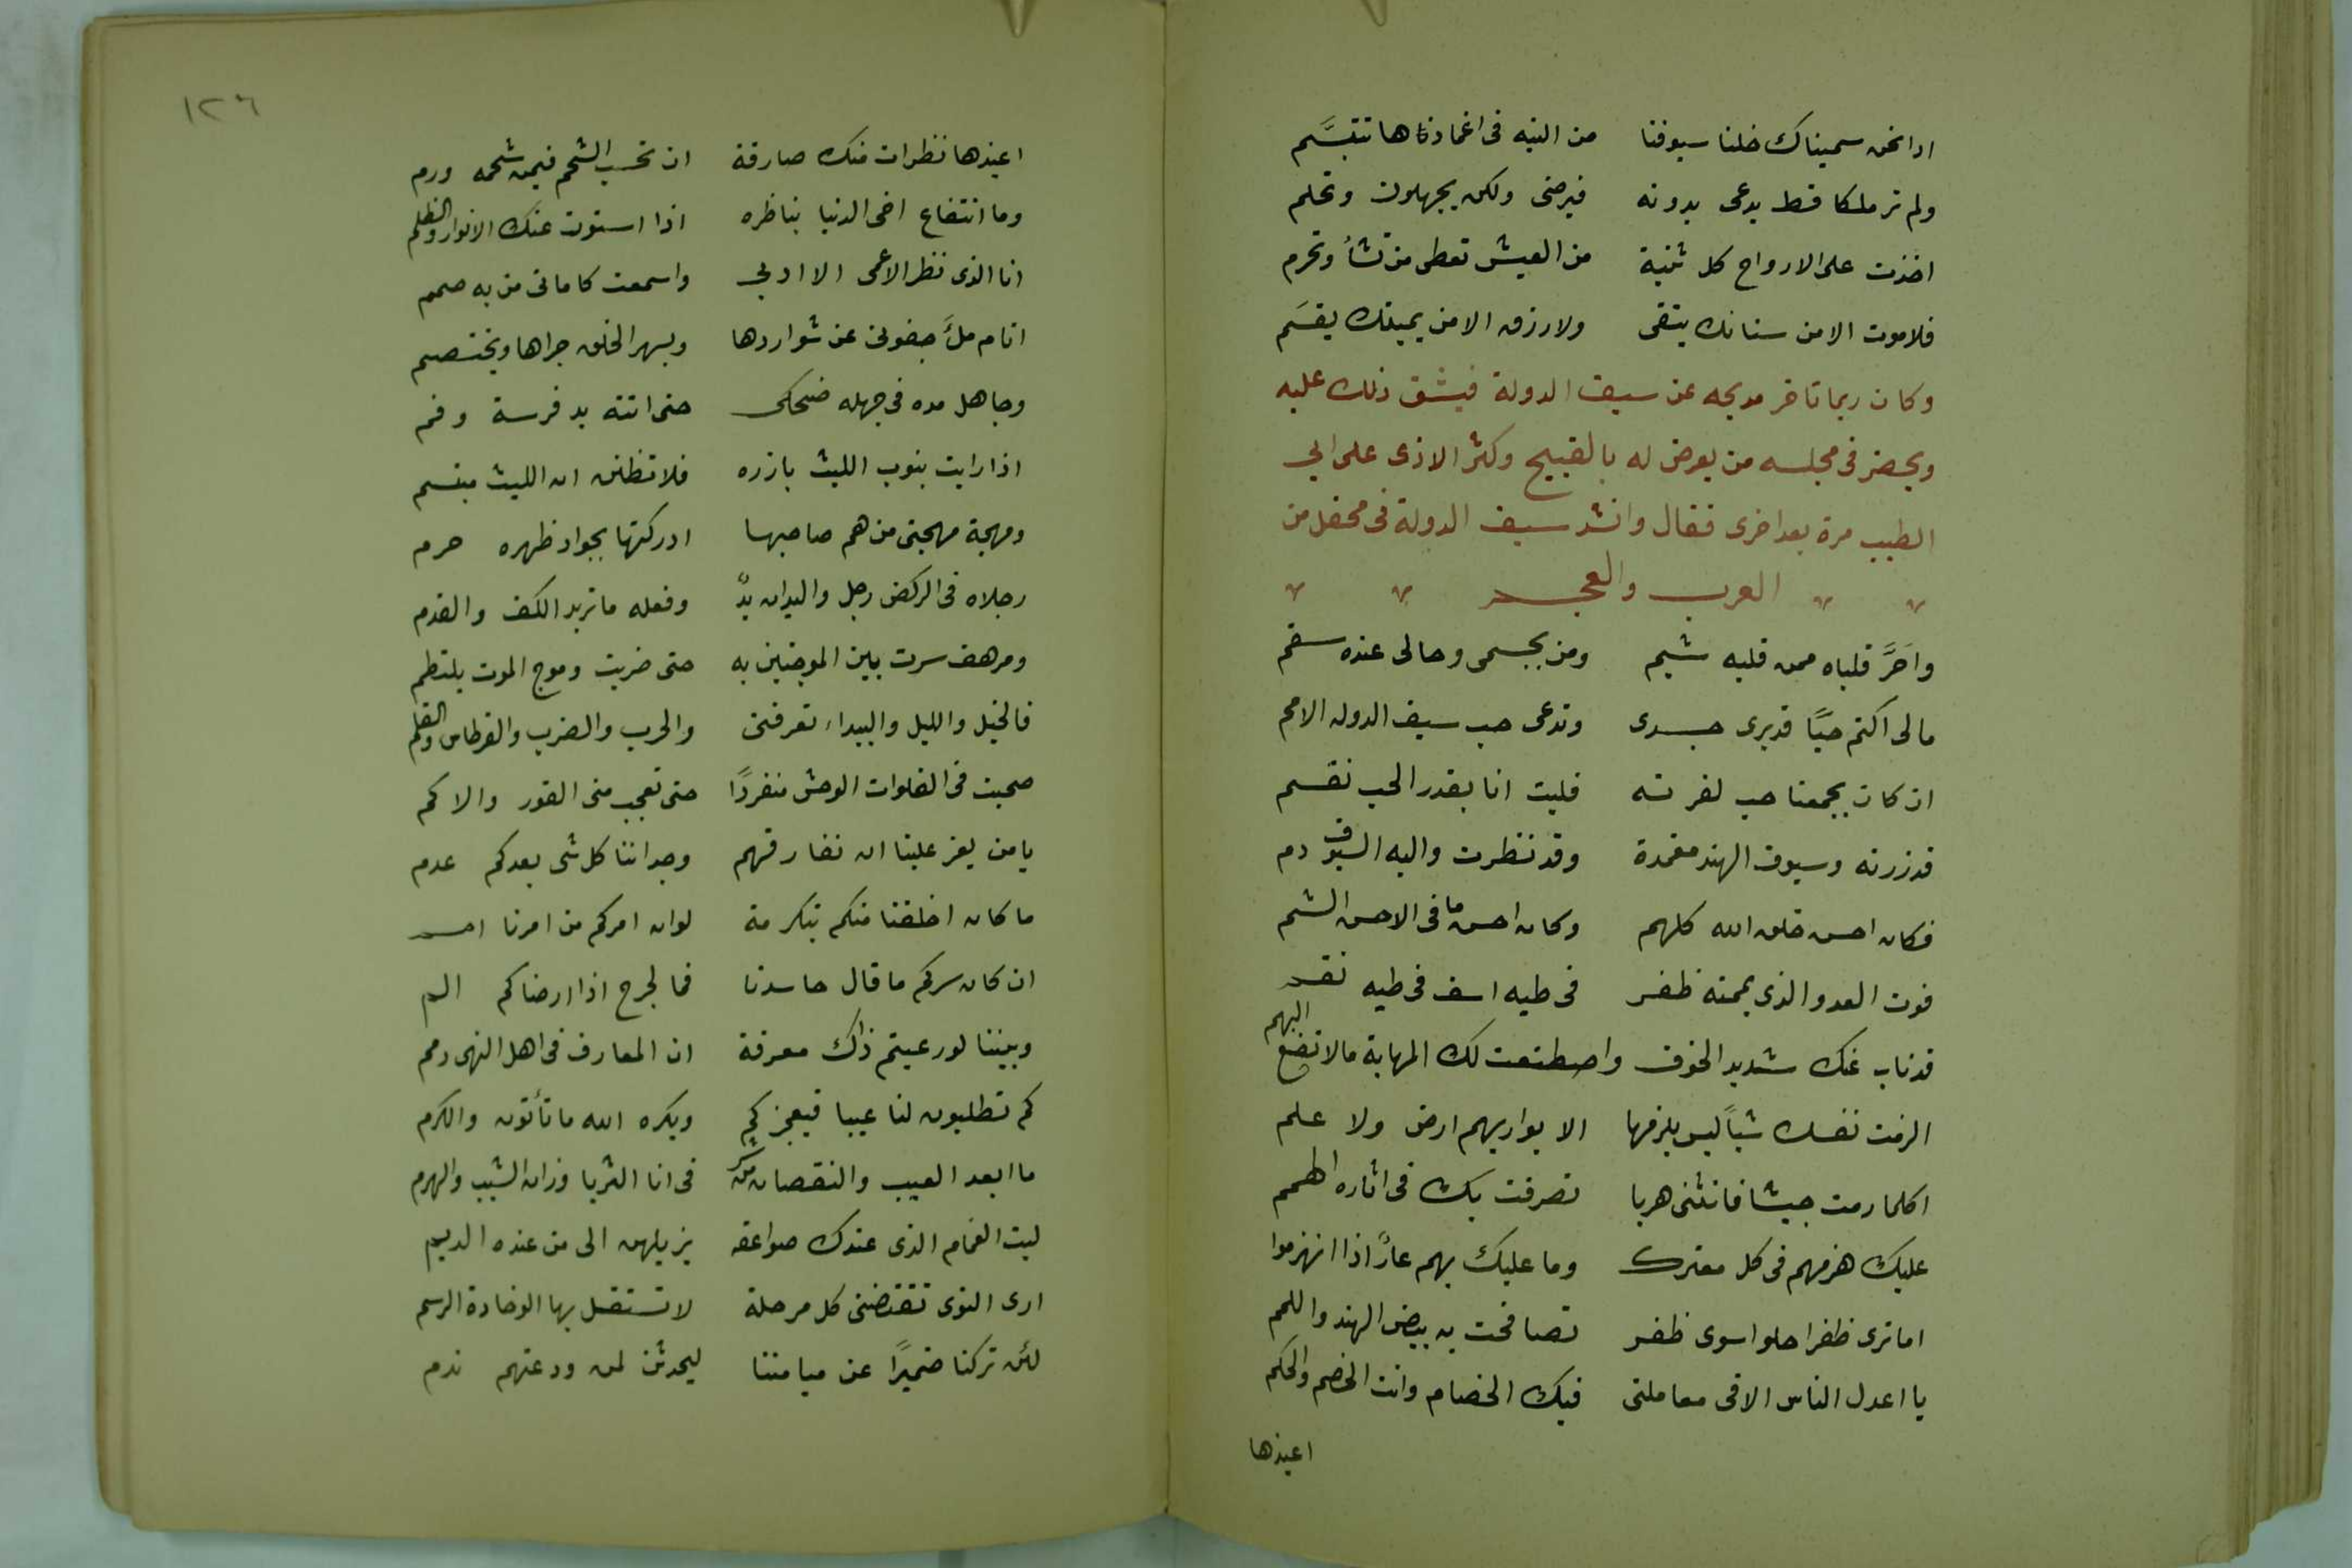 اذا نحن سميناك خلنا سيوفنا من التيه فى اغمادها تتبسَّم
ولم تر ملكا قط يدعى بدونه فيرضى ولكن يجهلون وتحلم
اخذت على الارواح كل ثنية من العيش تعطى من تشأ وتحرم
فلا موت الا من سنانك يتقى ولا رزق الا من يمينك يقسَم
وكان ربما تاخر مديحه عن سيف الدولة فيشق ذلك عليه
ويحضر فى مجلسه من يعرض له بالقبيح وكثر الاذى على ابي
الطيب مرة بعد اخرى فقال وانشد سيف الدولة فى محفل من
العرب والعجم
واحَرَّ قلباه ممن قلبه شبم ومن بجسمى وحالى عنده سقم
مالى اكتم حبًا قد برى جسدى وتدعى حب سيف الدوله الامم
ان كان يجمعنا حب لغرته فليت انا بقدر الحب نقتسم
قد زرته وسيوف الهند مغمدة وقد نظرت واليه السيوف دم
فكان احسن خلق الله كلهم وكان احسن ما فى الاحسن الشيم
فوت العدو الذى يممته ظفر فى طيه اسف فى طيه نعم
قد ناب عنك شديد الخوف واصطنعت لك المهابة مالا تصنع البهم
الزمت نفسك شيأً ليس يلزمها الا يواريهم ارض ولا علم
اكلما رمت جيشا فانثنى هربا تصرفت بك فى اثاره الهمم
عليك هزمهم فى كل معترك وما عليك بهم عارٌ اذا انهزموا
اما ترى ظفرا حلوا سوى ظفر تصافحت به بيض الهند واللمم
يا اعدل الناس الا فى معاملتى فيك الخصام وانت الخصم والحكم
اعيذها
١٢٦
اعيذها نظرات منك صادقة ان تحسب الشحم فيمن شحمه ورم
وما انتفاع اخى الدنيا بناظره اذا استوت عنك الانوار والظلم
انا الذى نظر الاعمى الا ادبي واسمعت كلماتى من به صمم
انام ملأَ جفونى عن شواردها ويسهر الخلق جراها ويختصم
وجاهل مده فى جهله ضحكى حتى اتته يد فرسة وفم
اذا رايت بنوب الليث بازره فلا تظنن ان الليث مبتسم
ومهجة مهجتى من هم صاحبها ادركتها بجواد ظهره حرم
رجلاه فى الركض رجل واليدان يدٌ وفعله ما تريد الكف والقدم
ومرهف سرت بين الموجتين به حتى ضربت وموج الموت يلتطم
فالخيل والليل والبيداء تعرفنى والحرب والضرب والقرطاس والقلم
صحبت فى الفلوات الوحش منفردًا حتى تعجب منى القور والاكم
يا من يعز علينا ان نفارقهم وجداننا كل شى بعدكم عدم
ما كان اخلقنا منكم بتكرمة لو ان امركم من امرنا امم
ان كان سركم ما قال حاسدنا فما لجرح اذا ارضاكم الم
وبيننا لو رعيتم ذاك معرفة ان المعارف فى اهل النهى ذمم
كم تطلبون لنا عيبا فيعجزكم ويكره الله ما تأتون والكرم
ما ابعد العيب والنقصان من شرفى انا الثريا وذان الشيب والهرم
ليت الغمام الذى عندك صواعقه يزيلهن الى من عنده الديم
ارى النوى تقتضنى كل مرحلة لا تستقل بها الوخادة الرسم
لئن تركنا ضميرًا عن ميامننا ليحدثن لمن ودعتهم ندم